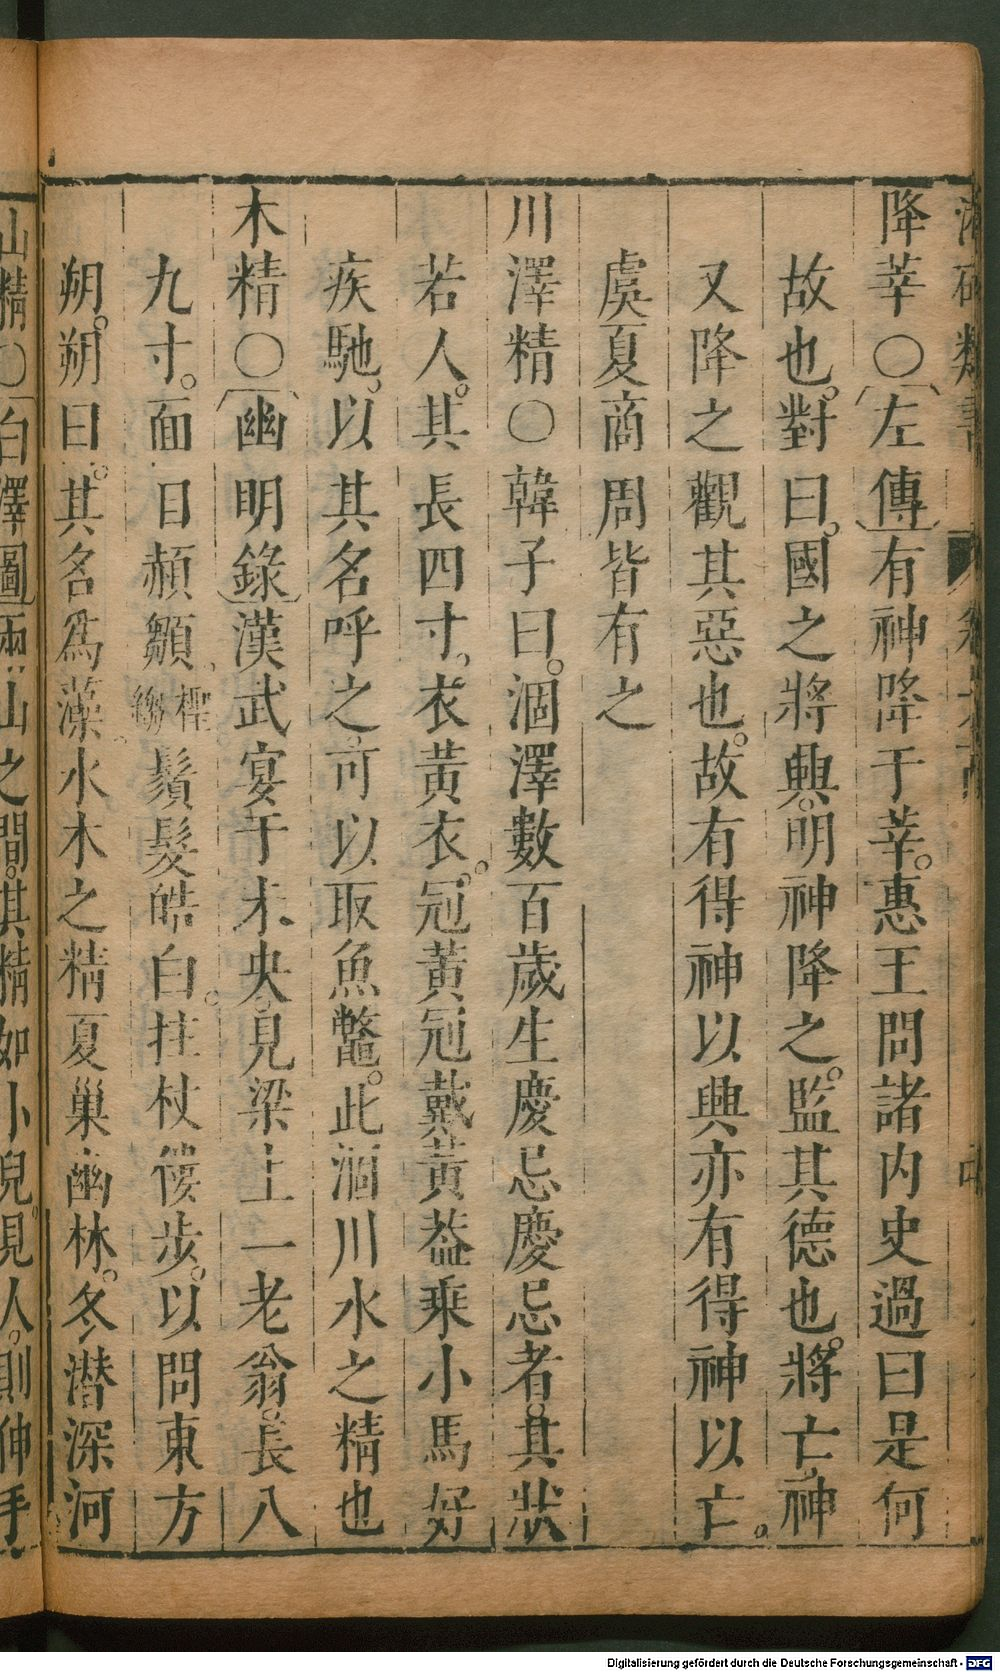 降莘○左傳有神降于莘。惠王問諸内史過曰是何
故也。對曰。國之將興。明神降之。監其德也。將亡。神
又降之觀其惡也。故有得神以興亦有得神以亡。
虞夏商周皆有之
川澤精○韓子曰。涸澤數百歲生慶忌慶忌者。其狀
若人。其長四寸。衣黃衣。冠黃冠戴黃葢乘小馬好
疾馳。以其名呼之。可以取魚鼈。此涸川水之精也
木精○幽明錄漢武宴于未央。見梁上一老翁。長八
九寸。面目赬皺。鬚髮皓白。拄杖僂步。以問東方
朔。朔曰。其名爲藻。水木之精夏巢幽林。冬潜深河
山精○白澤圖兩山之間。其精如小兒。見人。則伸手
Digitalisierung gefördert durch die Deutsche Forschungsgemeinschaft - DFG